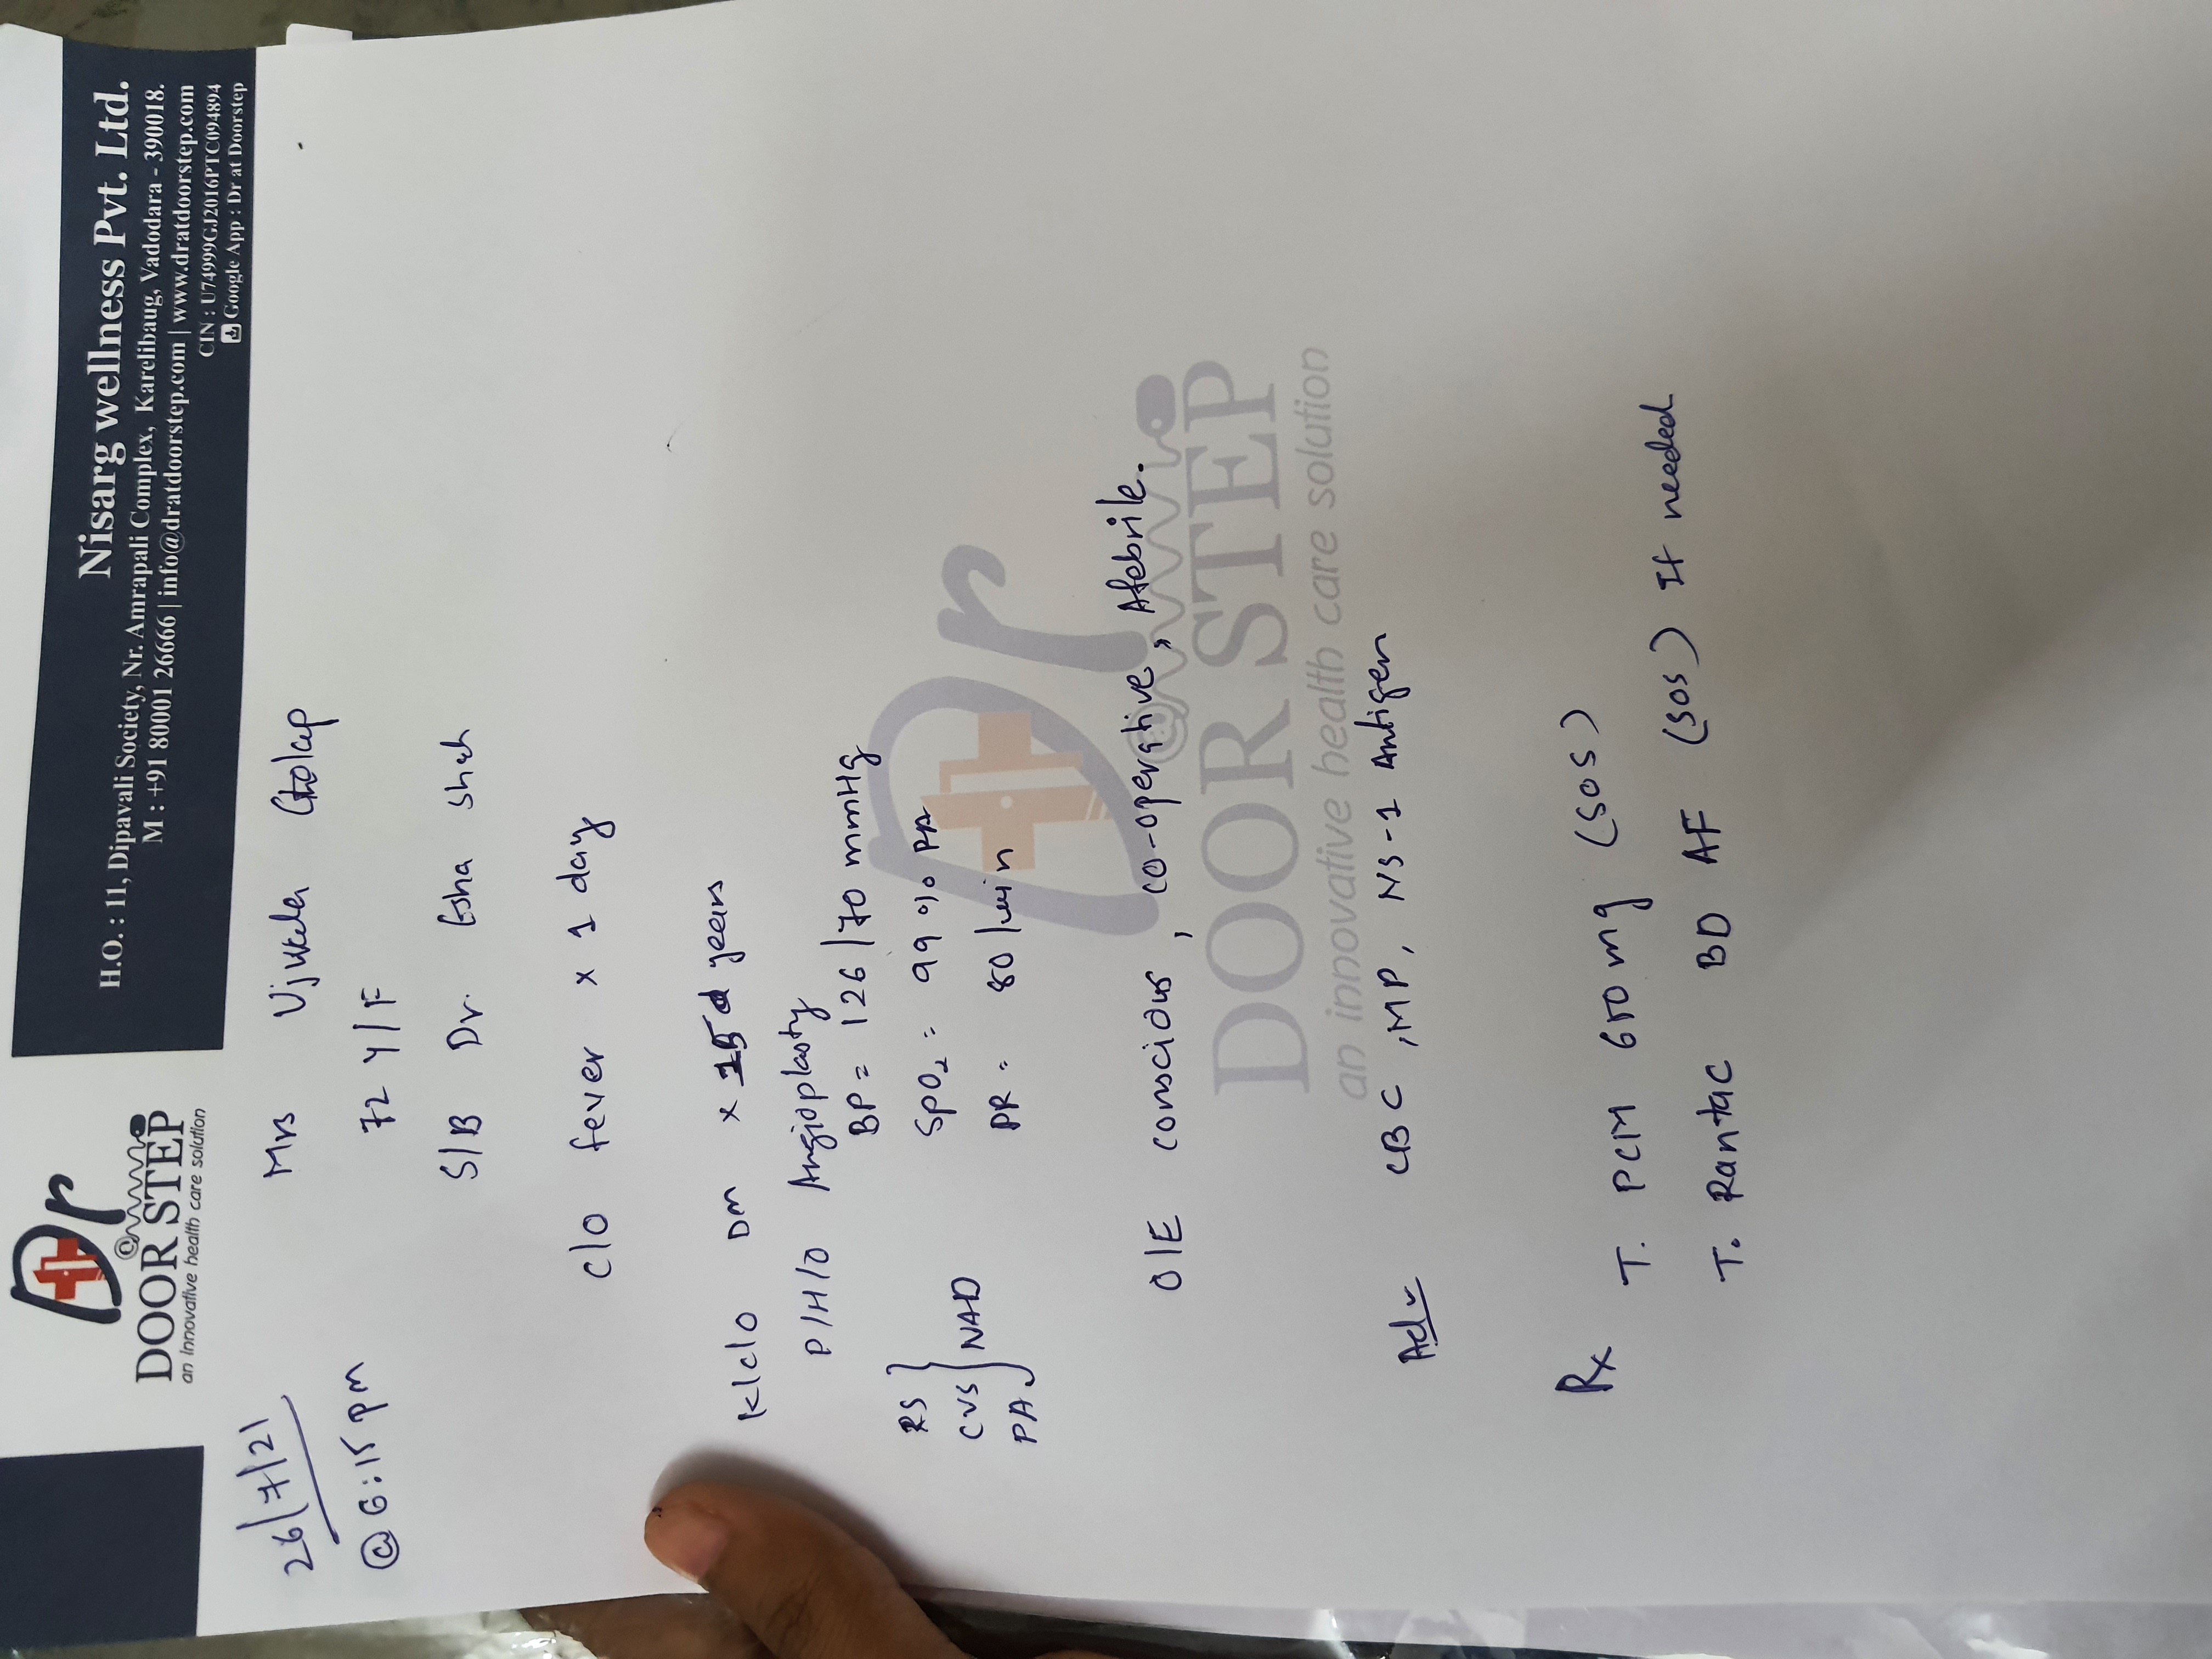 Dr
@
DOOR STEP
an innovative health care solution
Nisarg wellness Pvt. Ltd.
H.O. : 11, Dipavali Society, Nr. Amrapali Complex, Karelibaug, Vadodara - 390018.
M : +91 80001 26666 | info@dratdoorstep.com | www.dratdoorstep.com
CIN : U74999GJ2016PTC094894
Google App : Dr at Doorstep
26/7/21
@ 6:15 pm
Mrs Ujwala Gholap
72 Y/F
S/B Dr. Esha Shah
c/o fever x 1 day
K/c/o DM x 15 years
P/H/O Angioplasty
BP = 126/70 mmHg
SpO2 = 99 % RA
PR = 80/min
RS
CVS
PA
NAD
O/E conscious, co-operative, Afebrile.
Dr
@
DOOR STEP
an innovative health care solution
Adv CBC, MP, NS-1 Antigen
Rx
T. PCM 650 mg (SOS)
T. Rantac BD AF (SOS) If needed